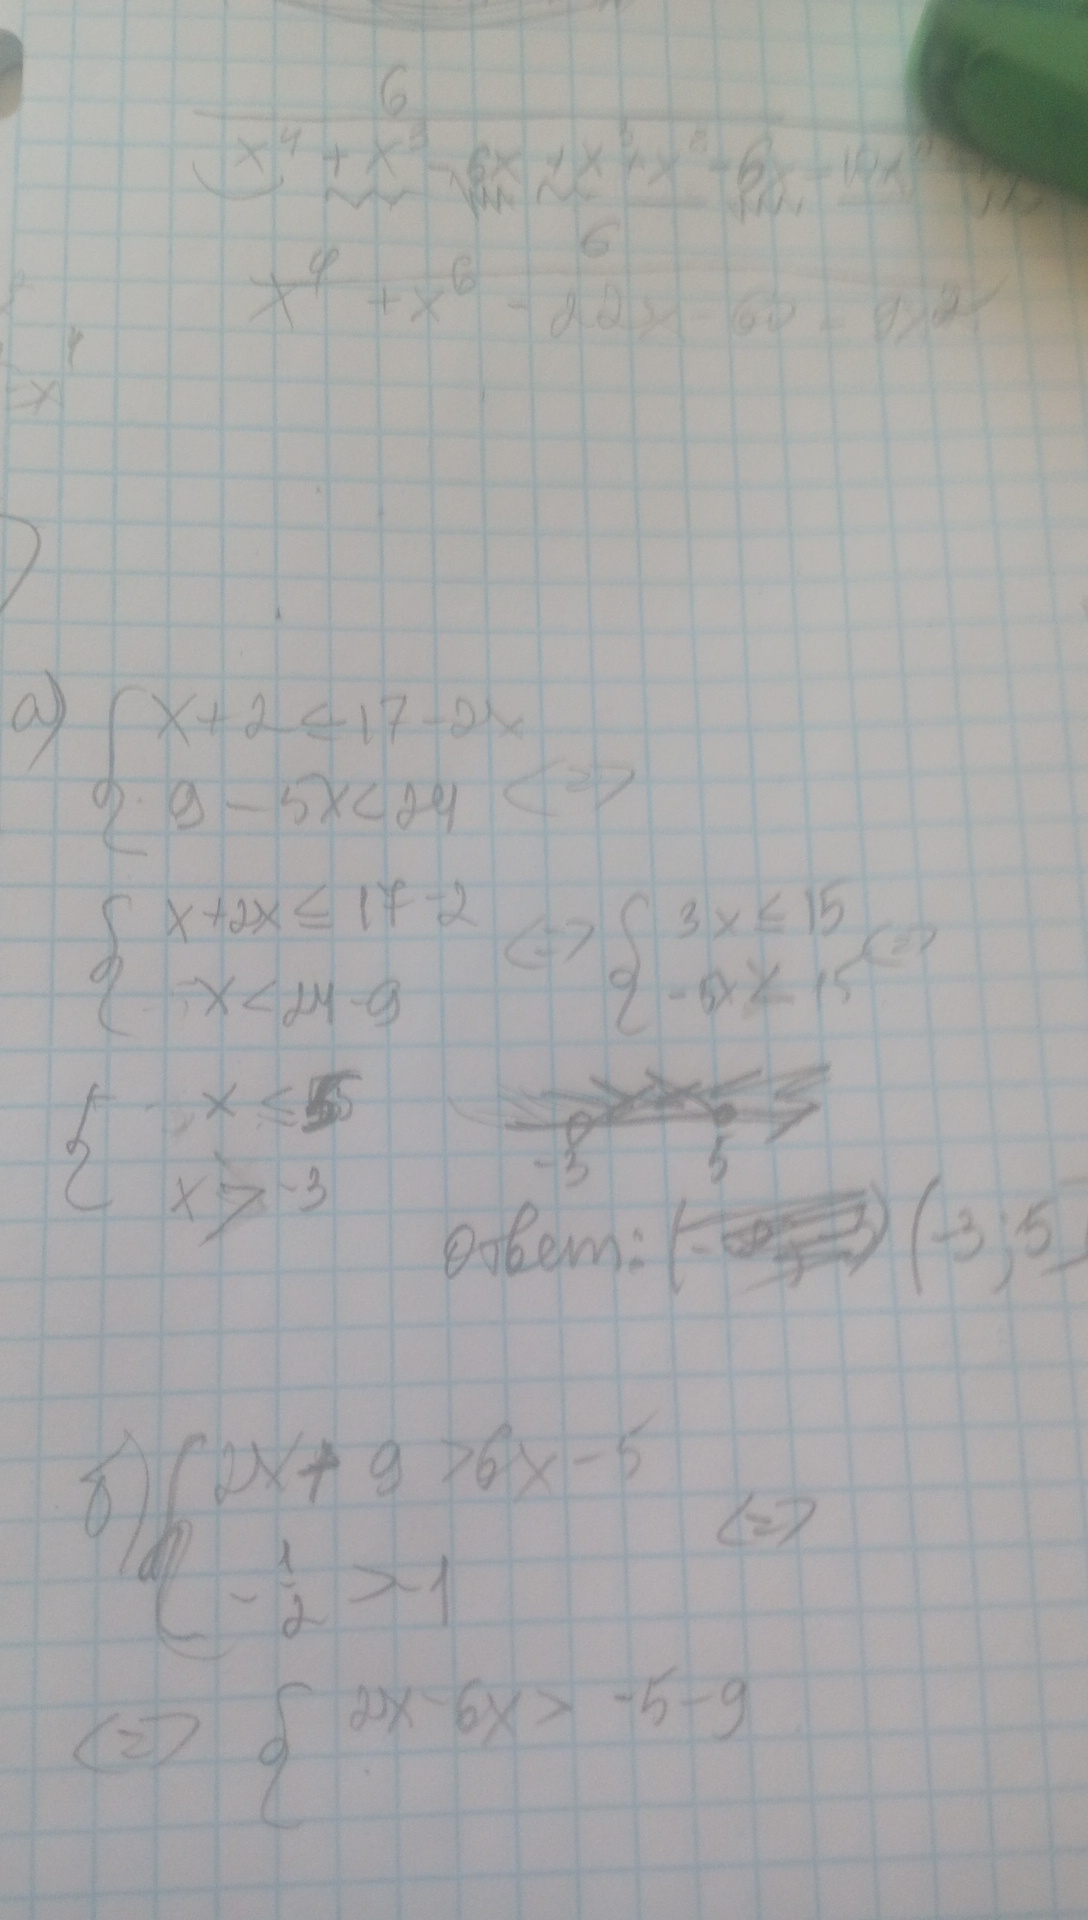 6
x⁴ + x³ - 6x + x³ + x² - 6x - 10x
6
x⁴ + x⁶ - 22x - 60 - 9x²
-x⁴
а) { x + 2 ≤ 17 - 2x
9 - 5x < 24 <=>
{ x + 2x ≤ 17 - 2 <=> { 3x ≤ 15 <=>
-x < 24 - 9 -5x < 15
{ x ≤ 5
x > -3
-3 5
Ответ: (-3; 5]
б) { 2x + 9 > 6x - 5
- 1/2 > -1 <=>
<=> { 2x - 6x > -5 - 9